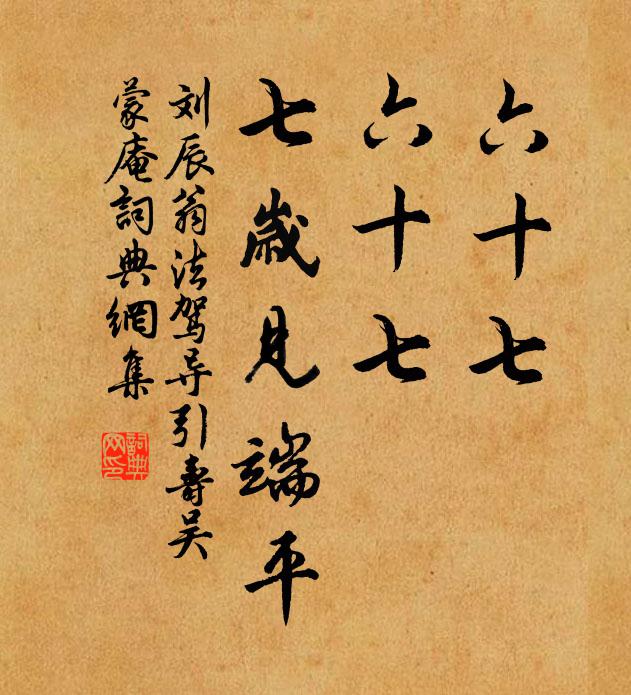 六十七
六十七
七歲見端平
刘辰翁法駕导引壽吴
蒙庵詞典網集
詞典网印